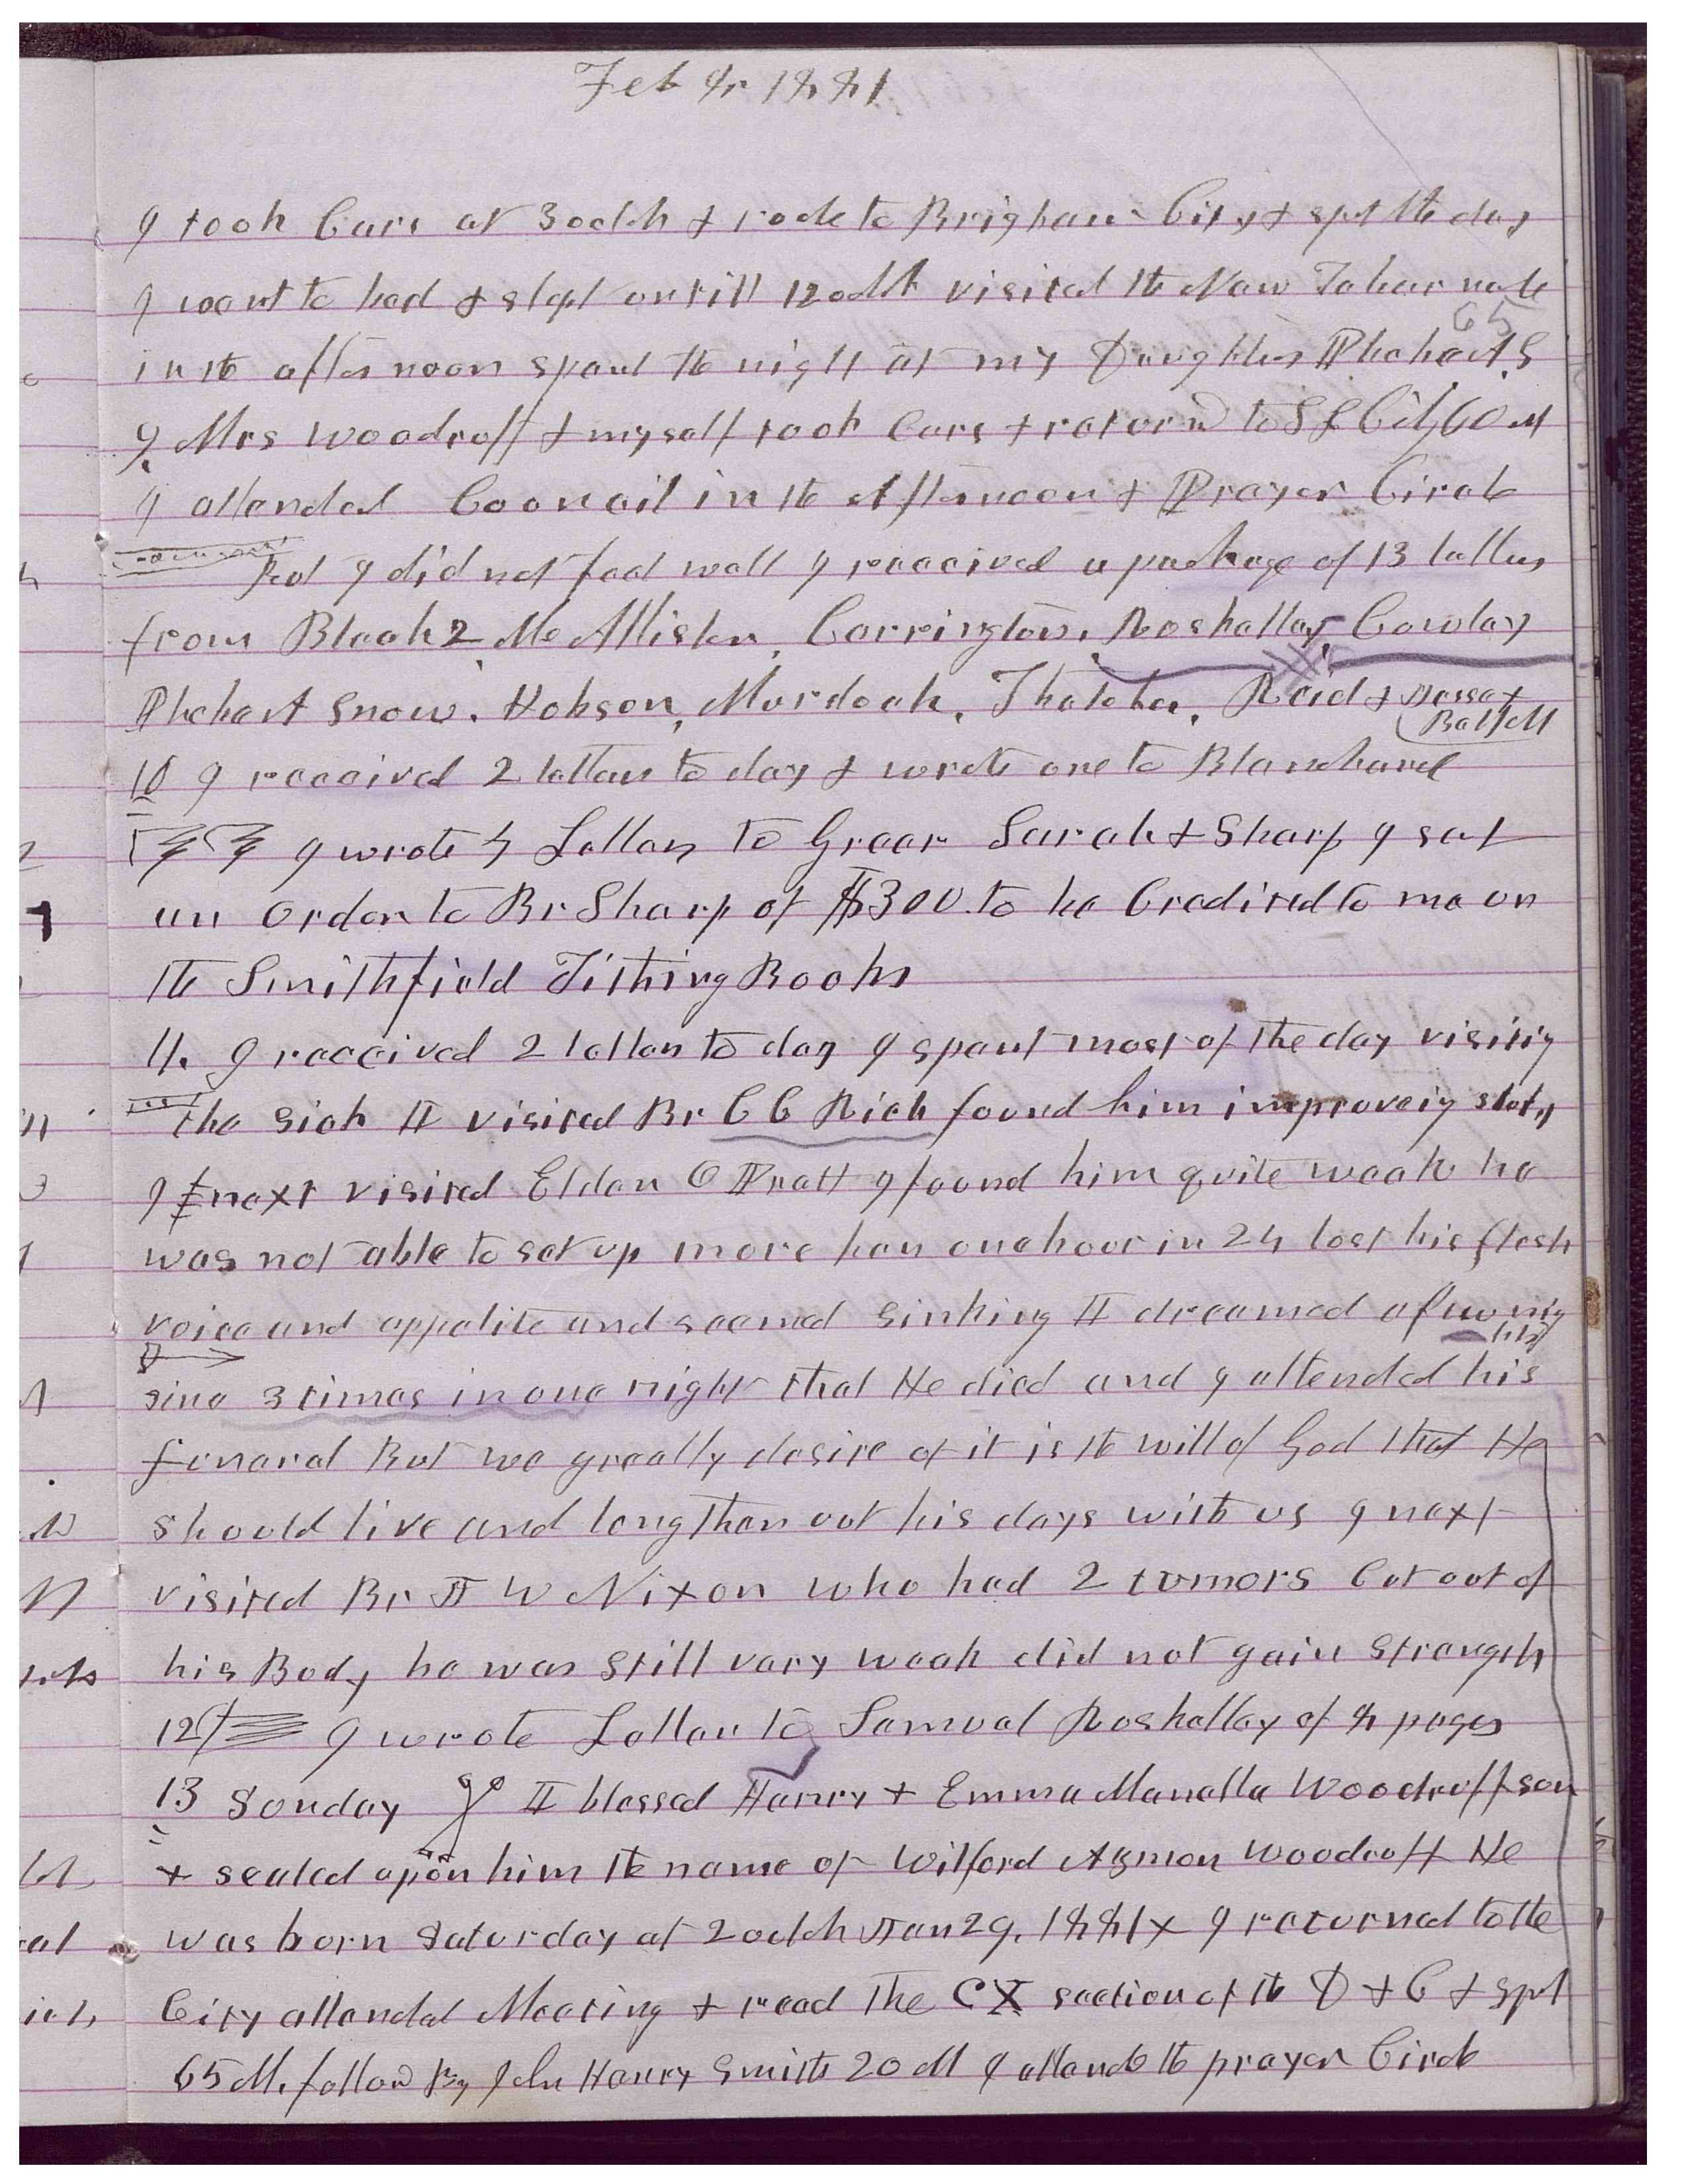 Feb 8, 1881
I took Cars at 3 oclk & rode to Brigham City & spt the day
I went to bed & slept untill 12 oclk visited the New Tabernacle
65
in the afternoon spent the night at my Daughters Phebe A S
9. Mrs Woodruff & myself took Cars & returnd to S L City 60 M
I attended Council in the Afternoon & Prayer Circle
But I did not feel well I received a package of 13 letters
from Bleak 2 McAllister, Carrington, Roskelley, Cowley
Phebe A Snow, Hobson, Murdock, Thatcher, Reid &
10 I received 2 letters to day & wrote one to Blanchard
I wrote 4 Letters to Greer Sarah & Sharp I sent
an order to Br Sharp of $300. to be Credited to me on
the Smithfield Tithing Books
11. I received 2 letters to day I spent most of the day visiting
the sick I visited Br C C Rich found him improveing slowly
I next visited Elder O Pratt I found him quite weak he
was not able to set up more han one hour in 24 lost his flesh
voice and appetite and seemed sinking I dreamed a few nights
sine 3 times in one night that He died and I attended his
funeral But we greatly desire of it is the will of God that He
should live and lengthen out his days with us I next
visited Br J W Nixon who had 2 tumors Cut out of
his Body he was still very weak did not gain strength
12 I wrote Letter to Samuel Roskelley of 8 pages
13 Sunday I blessed Henry & Emma Manella Woodruff son
& sealed upon him the name of Wilford Azmon Woodruff He
was born Saturday at 2 oclk Jan 29, 1881 X I returned to the
City attended Meeting & read the CX section of the D & C & spok
65 M. followd By John Henry Smith 20 M I attended the prayer Circle